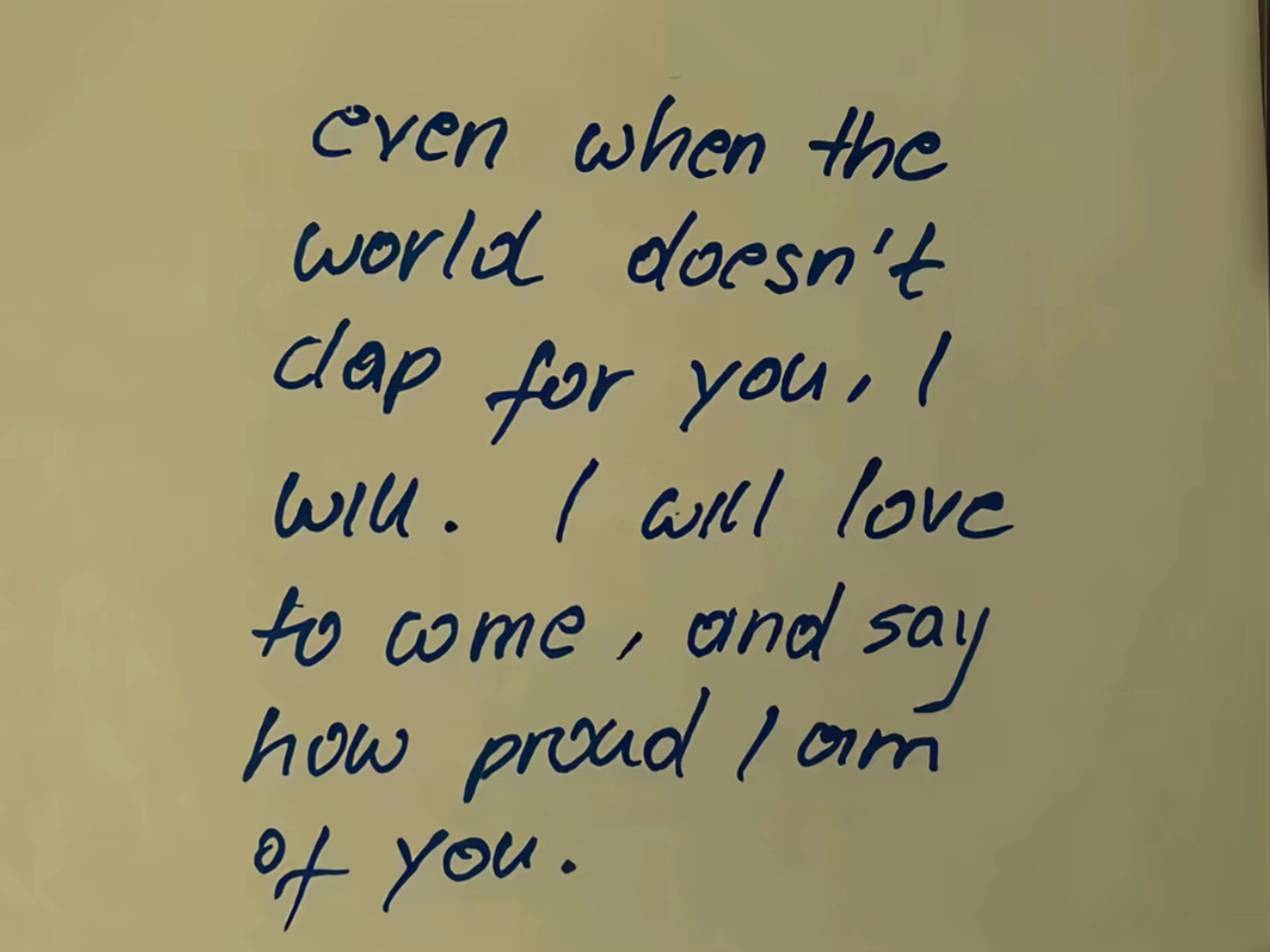 even when the
world doesn't
clap for you, I
will. I will love
to come, and say
how proud I am
of you.